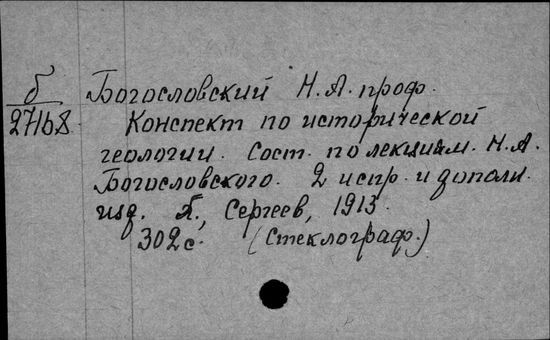 б Богословский Н.А. проф.
27168 Конспект по исторической
геологии. Сост. по лекциям. Н.А.
Богословского. 2 испр. и дополн.
изд. Я., Сергеев, 1913.
302 с. (Стеклограф.)